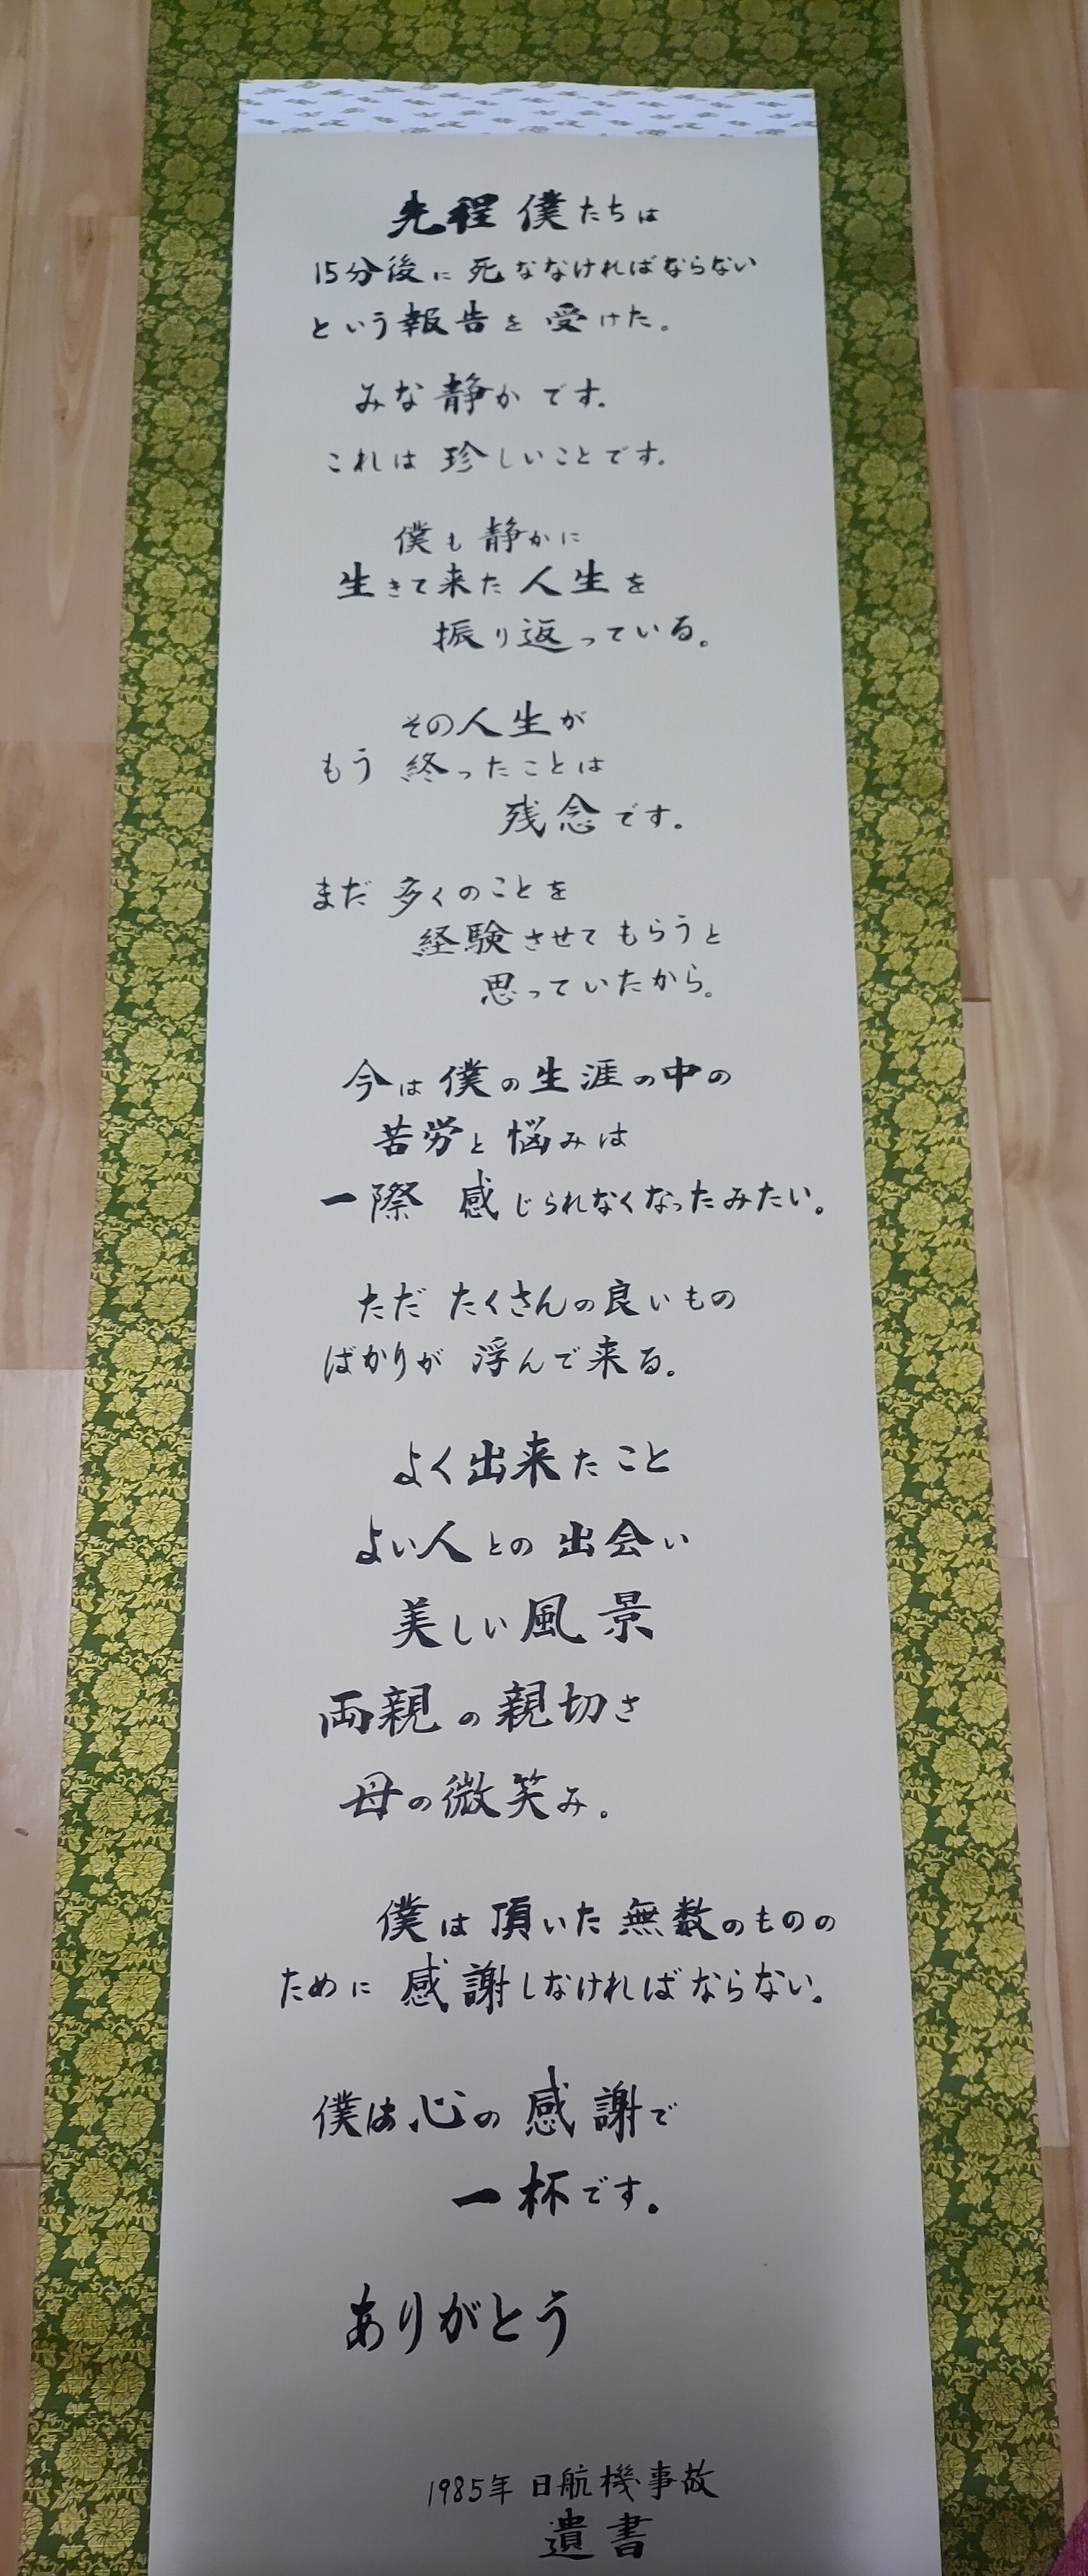 先程僕たちは
15分後に死ななければならない
という報告を受けた。
みな静かです。
これは珍しいことです。
僕も静かに
生きて来た人生を
振り返っている。
その人生が
もう終ったことは
残念です。
まだ多くのことを
経験させてもらうと
思っていたから。
今は僕の生涯の中の
苦労と悩みは
一際感じられなくなったみたい。
ただたくさんの良いもの
ばかりが浮んで来る。
よく出来たこと
よい人との出会い
美しい風景
両親の親切さ
母の微笑み。
僕は頂いた無数のものの
ために感謝しなければならない。
僕は心の感謝で
一杯です。
ありがとう
1985年日航機事故
遺書